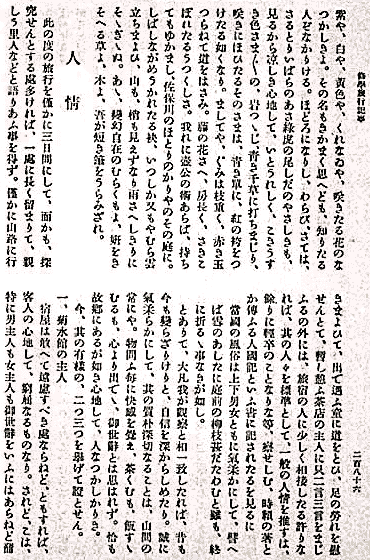 修學旅行記事
二百八十六
紫や、白や、黄色や、くれなゐや、咲きたる花のな
つかしきよ。その名もきかまく思へども、知りたる
人をなかりける。ほどろになりし、わらび、さては、
さるとりいばらのあさ綠虎の尾しだのやさしきも、
見るから涼しき心地して、いとうれしく、こきうす
き色さま〲の、岩つゝじ、青き千草に打ちまじり、
咲きにほひたるそのさまは、青き單に、紅の袴をつ
けたる如くなり。ましてや、ぐみは枝重く、赤き玉
つらねて道をはさみ。藤の花さへ、房長く、さきこ
ぼれたるうつくしさ。我れに壺公の術あらば、持ち
てもゆかまし、佐保川のほとりのかりやのその庭に。
しばしながめうかれたる秋、いつしか又もやむら雲
立ちまよひ、山も、樹も見えずなり雨さへしきりに
そゝぎぬ。あゝ、變幻自在のむらくもよ、妍をき
そへる草よ、木よ、吾が短き筆をうらみざれ。
人情
此の度の旅行を僅かに三日間にして、而かも、探
究せんとする處多ければ、一處に長く留まりて、親
しう里人などと語りあふ事を得ず。僅かに山路に行
きまよひて、出で遇ふ童に道をとひ、足の勞れを慰
せんとて、暫し憩ふ茶店の主人に只二言三言をまじ
ふるの外には、旅宿の人に少しく相接したる許りな
れば、其の人々を標準として、一般の人情を推すは
餘りに輕卒のことなりなど、察せしむ、時賴の著と
か傳ふる人國記といふ書に記されたるを見るに
當國の風俗は上下男女ともに氣柔かにして、譬へ
ば雪のあしたに庭前の柳枝甚だたわむと雖も、終
に折るゝ事なきが如し。
とありて、大凡我が觀察と相一致したれば、昔も
今も變らざりけりと、自信を深からしめたり、誠に
氣柔らかにして、其の質朴深切なることは、山間の
常にや。物問ふ毎に快感を覺え、茶くむも、飯すゝ
むるも、心より出でゝ、御世辭とは思はれず。恰も
故鄕にあるが如き心地して、人なつかしかりき。
今、其の有様の、二つ三つを擧げて證とせん。
一、菊水館の主人
宿屋は敢へて遠慮すべき處ならねど、ともすれば、
客人の心地して、窮屈なるものなり。されどこは、
特に男主人も女主人も御世辭をいふにはあらねど酷